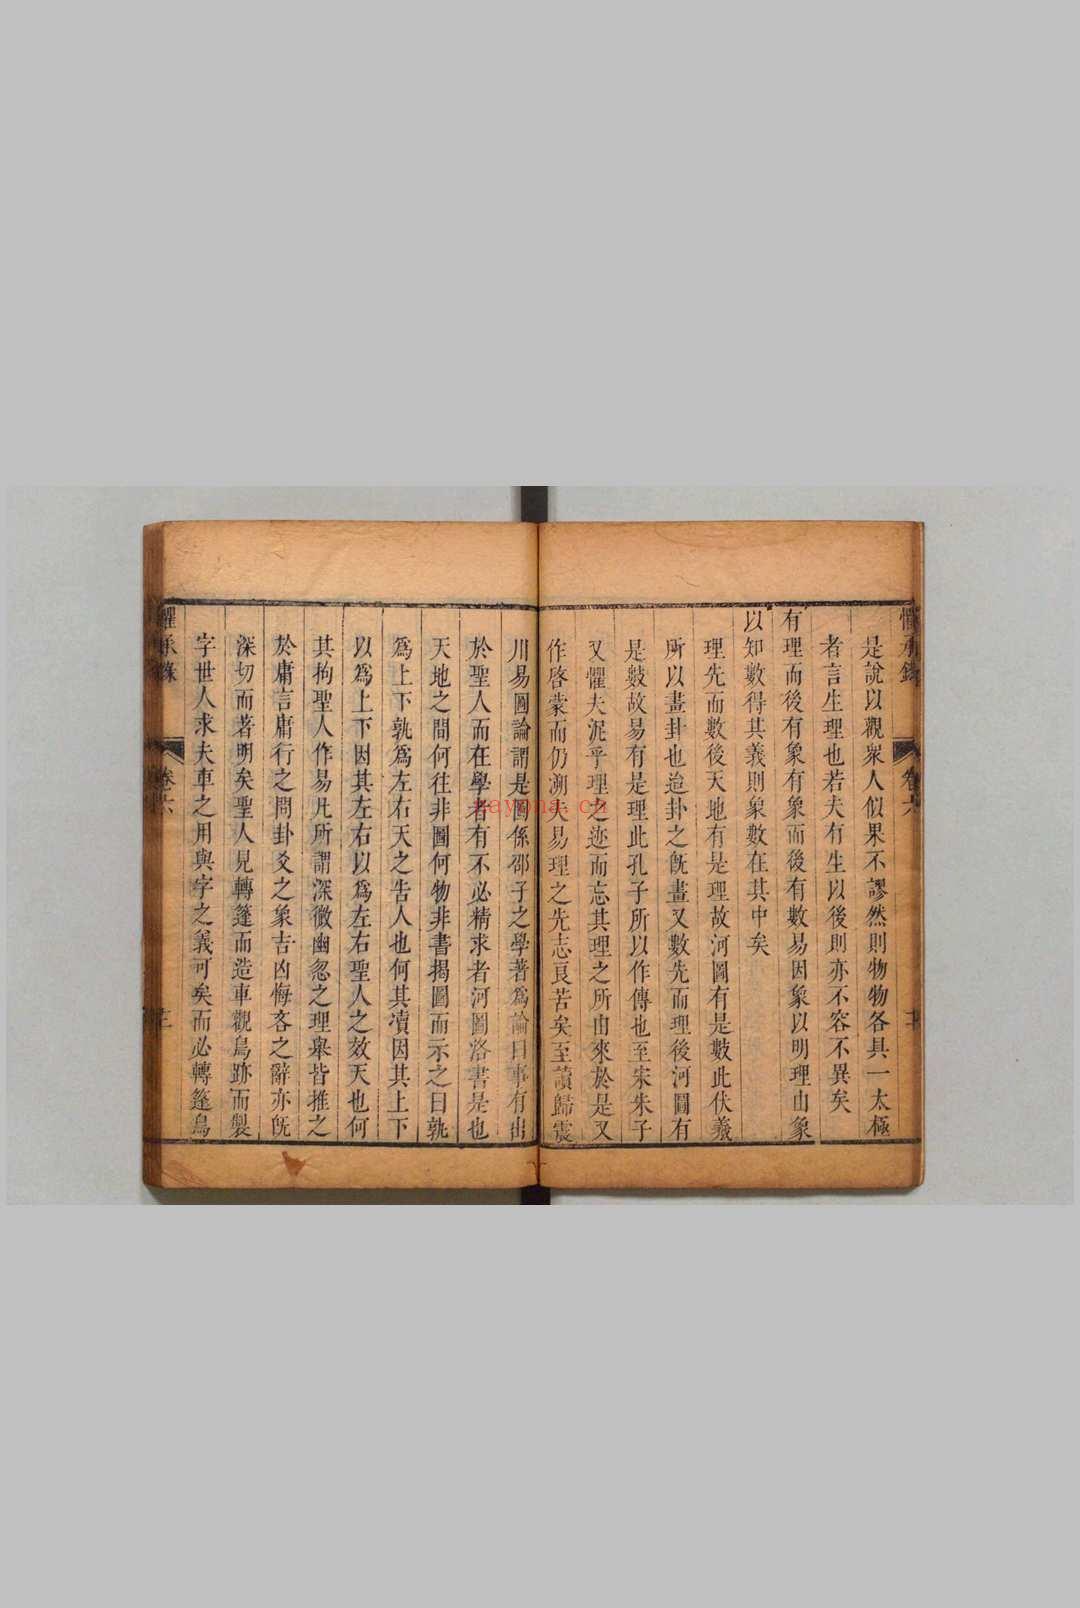 懼承錄
卷六
是說以觀衆人似果不謬然則物物各具一太極
者言生理也若夫有生以後則亦不容不異矣
有理而後有象有象而後有數易因象以明理由象
以知數得其義則象數在其中矣
理先而數後天地有是理故河圖有是數此伏羲
所以畫卦也迨卦之旣畫又數先而理後河圖有
是數故易有是理此孔子所以作傳也至宋朱子
又懼夫泥乎理之迹而忘其理之所由來於是又
作啓蒙而仍溯夫易理之先志良苦矣至讀歸震
川易圖論謂是圖係邵子之學著爲論曰事有出
於聖人而在學者有不必精求者河圖洛書是也
天地之間何往非圖何物非書揭圖而示之曰孰
爲上下孰爲左右天之告人也何其瀆因其上下
以爲上下因其左右以爲左右聖人之效天也何
其拘聖人作易凡所謂深微幽忽之理舉皆推之
於庸言庸行之間卦爻之象吉凶悔吝之辭亦旣
深切而著明矣聖人見轉篷而造車觀鳥跡而製
字世人求夫車之用與字之義可矣而必轉篷鳥
懼承錄
卷六
navona.ch